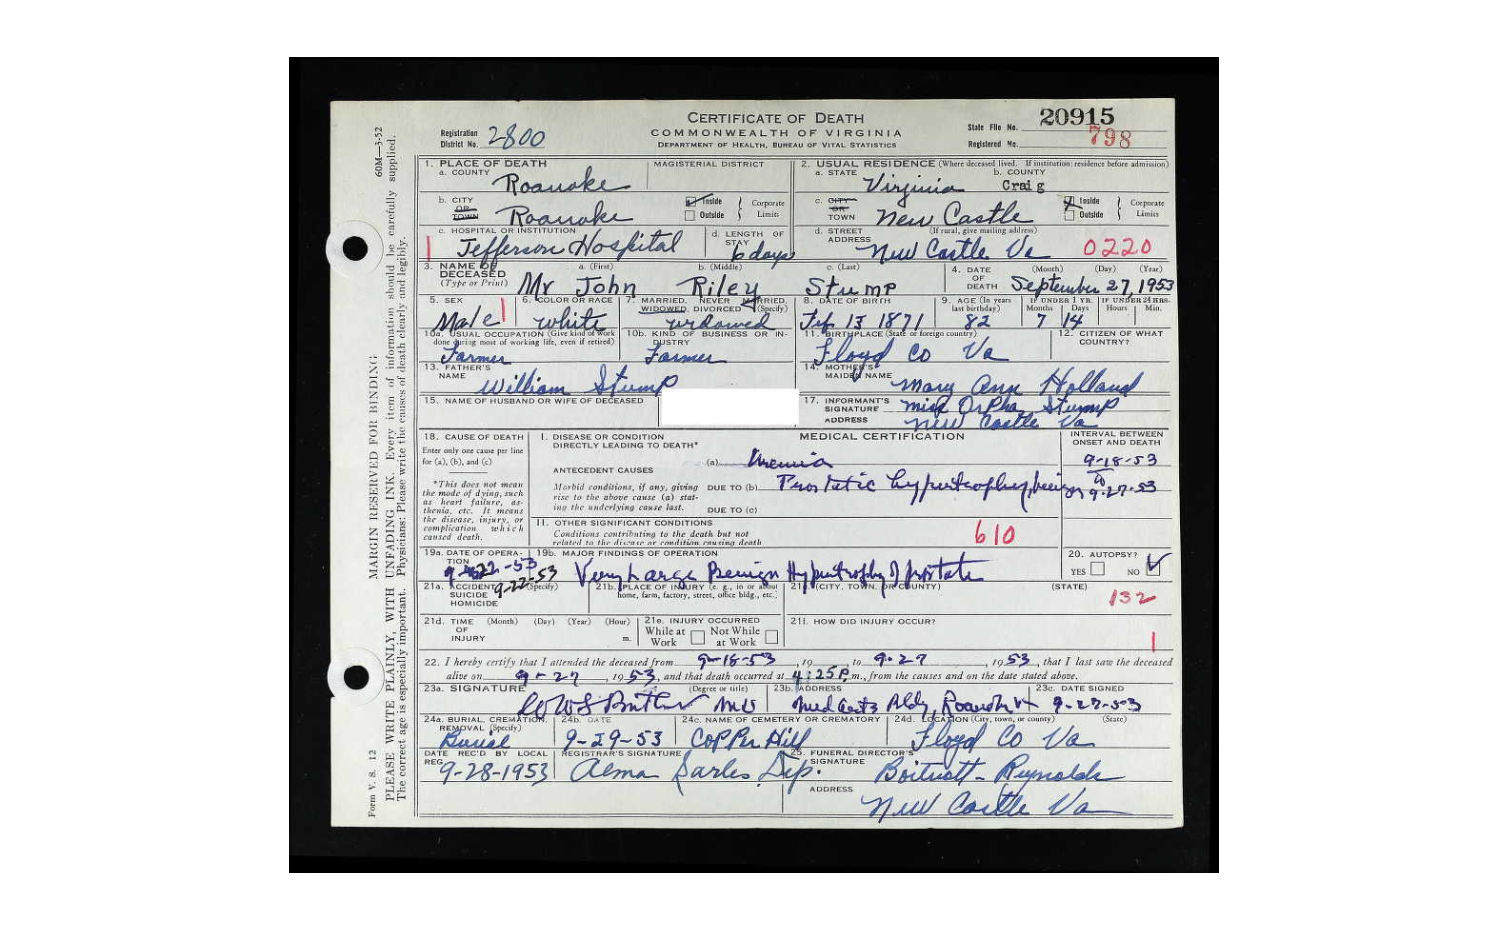 CERTIFICATE OF DEATH
COMMONWEALTH OF VIRGINIA
DEPARTMENT OF HEALTH, BUREAU OF VITAL STATISTICS
Registration District No. 2800
State File No. 20915
Registered No. 798
1. PLACE OF DEATH
a. COUNTY Roanoke
MAGISTERIAL DISTRICT
2. USUAL RESIDENCE (Where deceased lived. If institution: residence before admission)
a. STATE Virginia b. COUNTY Craig
b. CITY OR TOWN Roanoke
Inside Outside Corporate Limits
c. CITY OR TOWN New Castle
Inside Outside Corporate Limits
c. HOSPITAL OR INSTITUTION Jefferson Hospital
d. LENGTH OF STAY 6 days
d. STREET ADDRESS (If rural, give mailing address) New Castle Va 0220
3. NAME OF DECEASED (Type or Print)
a. (First) b. (Middle) c. (Last)
Mr John Riley Stump
4. DATE OF DEATH (Month) (Day) (Year)
September 27, 1953
5. SEX Male
6. COLOR OR RACE white
7. MARRIED, NEVER MARRIED, WIDOWED, DIVORCED (Specify) widowed
8. DATE OF BIRTH 13 1871
9. AGE (In years last birthday) 82
IF UNDER 1 YR. Months Days 7 14
IF UNDER 24 HRS. Hours Min.
10a. USUAL OCCUPATION (Give kind of work done during most of working life, even if retired) Farmer
10b. KIND OF BUSINESS OR INDUSTRY Farmer
11. BIRTHPLACE (State or foreign country) Floyd Co Va
12. CITIZEN OF WHAT COUNTRY?
13. FATHER'S NAME William Stump
14. MOTHER'S MAIDEN NAME Mary Ann Holland
15. NAME OF HUSBAND OR WIFE OF DECEASED
17. INFORMANT'S SIGNATURE Miss Orpha Stump
ADDRESS New Castle Va
18. CAUSE OF DEATH
Enter only one cause per line for (a), (b), and (c)
*This does not mean the mode of dying, such as heart failure, asthenia, etc. It means the disease, injury, or complication which caused death.
MEDICAL CERTIFICATION
INTERVAL BETWEEN ONSET AND DEATH
I. DISEASE OR CONDITION DIRECTLY LEADING TO DEATH*
(a) Uremia
9-18-53
to
9-27-53
ANTECEDENT CAUSES
Morbid conditions, if any, giving rise to the above cause (a) stating the underlying cause last.
DUE TO (b) Prostatic hypertrophy, benign
DUE TO (c)
II. OTHER SIGNIFICANT CONDITIONS
Conditions contributing to the death but not related to the disease or condition causing death
610
19a. DATE OF OPERATION 9-22-53
9-22-53
19b. MAJOR FINDINGS OF OPERATION
Very Large Benign Hypertrophy of prostate
20. AUTOPSY?
YES NO
21a. ACCIDENT SUICIDE HOMICIDE (Specify)
21b. PLACE OF INJURY (e. g., in or about home, farm, factory, street, office bldg., etc.)
21c. (CITY, TOWN, OR COUNTY) (STATE)
132
21d. TIME OF INJURY (Month) (Day) (Year) (Hour) m.
21e. INJURY OCCURRED
While at Work Not While at Work
21f. HOW DID INJURY OCCUR?
1
22. I hereby certify that I attended the deceased from 9-18-53, 19 to 9-27, 1953, that I last saw the deceased
alive on 9-27, 1953, and that death occurred at 4:25P m., from the causes and on the date stated above.
23a. SIGNATURE (Degree or title) MD
23b. ADDRESS Bldg, Roanoke
23c. DATE SIGNED 9-27-53
24a. BURIAL, CREMATION, REMOVAL (Specify) Burial
24b. DATE 9-29-53
24c. NAME OF CEMETERY OR CREMATORY Copper Hill
24d. LOCATION (City, town, or county) (State) Floyd Co Va
DATE REC'D BY LOCAL REG. 9-28-1953
REGISTRAR'S SIGNATURE Alma Sarles, Dep.
25. FUNERAL DIRECTOR'S SIGNATURE Boitnott-Reynolds
ADDRESS New Castle Va
Form V. S. 12
60M—3-52
MARGIN RESERVED FOR BINDING
PLEASE WRITE PLAINLY, WITH UNFADING INK. Every item of information should be carefully supplied.
The correct age is especially important. Physicians: Please write the causes of death clearly and legibly.